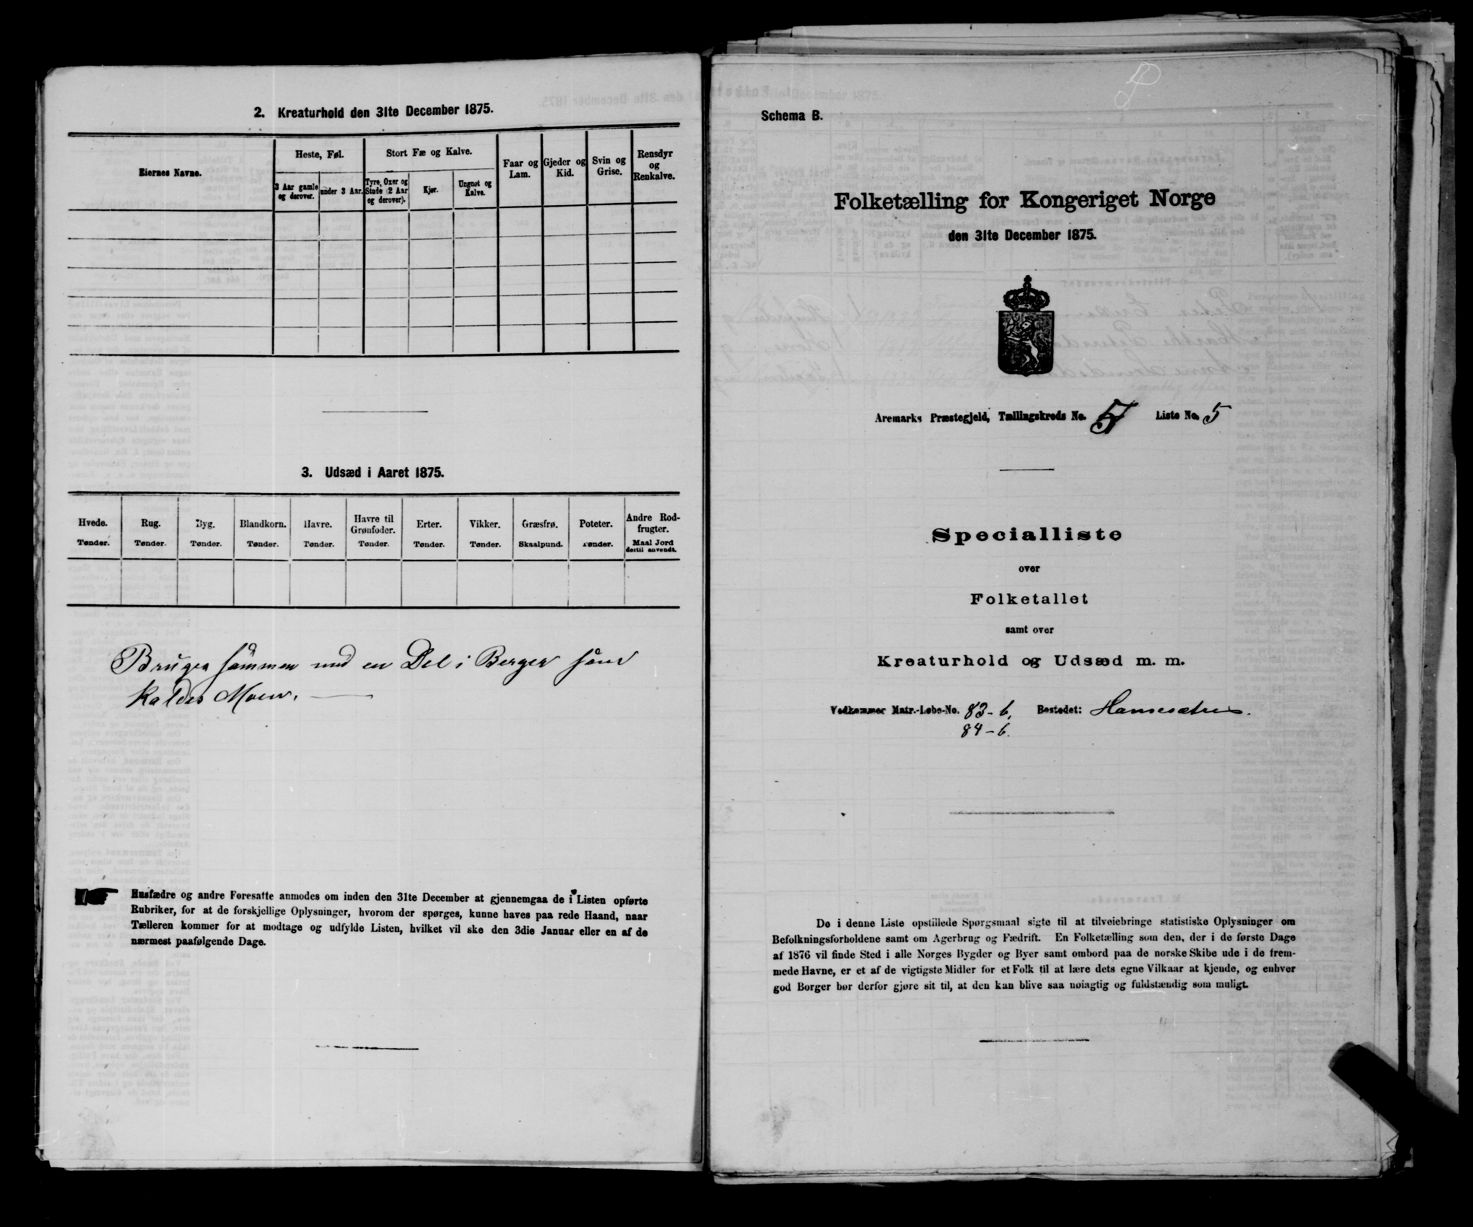 2. Kreaturhold den 31te December 1875.
Eiernes Navne.
Heste, Føl.
3 Aar gamle og derover.
under 3 Aar.
Stort Fæ og Kalve.
Tyre, Oxer og Stude (2 Aar og derover).
Kjør.
Ungnøt og Kalve.
Faar og Lam.
Gjeder og Kid.
Svin og Grise.
Rensdyr og Renkalve.
3. Udsæd i Aaret 1875.
Hvede. Rug. Byg. Blandkorn. Havre. Havre til Grønfoder. Erter. Vikker. Græsfrø. Poteter. Andre Rodfrugter.
Tønder. Tønder. Tønder. Tønder. Tønder. Tønder. Tønder. Tønder. Skaalpund. Tønder. Maal Jord dertil anvendt.
Bruges sammen med en Del i Berger som
kaldes Moen.
Husfædre og andre Foresatte anmodes om inden den 31te December at gjennemgaa de i Listen opførte
Rubriker, for at de forskjellige Oplysninger, hvorom der spørges, kunne haves paa rede Haand, naar
Tælleren kommer for at modtage og udfylde Listen, hvilket vil ske den 3die Januar eller en af de
nærmest paafølgende Dage.
Schema B.
Folketælling for Kongeriget Norge
den 31te December 1875.
Aremarks Præstegjeld, Tællingskreds No. 5, Liste No. 5
Specialliste
over
Folketallet
samt over
Kreaturhold og Udsæd m. m.
Vedkommer Matr.-Løbe-No. 83-b, Bostedet:
84-b.
De i denne Liste opstillede Spørgsmaal sigte til at tilveiebringe statistiske Oplysninger om
Befolkningsforholdene samt om Agerbrug og Fædrift. En Folketælling som den, der i de første Dage
af 1876 vil finde Sted i alle Norges Bygder og Byer samt ombord paa de norske Skibe ude i de frem-
mede Havne, er et af de vigtigste Midler for et Folk til at lære dets egne Vilkaar at kjende, og enhver
god Borger bør derfor gjøre sit til, at den kan blive saa nøiagtig og fuldstændig som muligt.